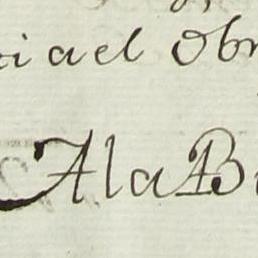 iael Obr
AlaB